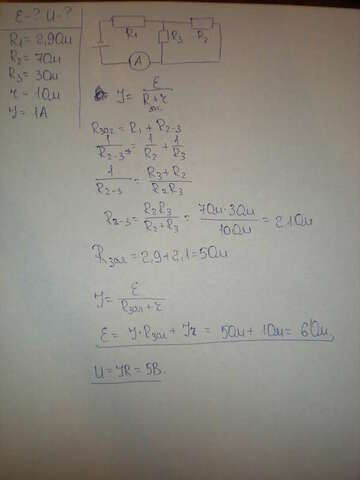 E-? U-?
R₁ = 2,9 Ом
R₂ = 7 Ом
R₃ = 3 Ом
r = 1 Ом
J = 1 А
R₁ R₃ R₂
A
J = E / (Rзаг + r)
Rзаг = R₁ + R₂₋₃
1/R₂₋₃ = 1/R₂ + 1/R₃
1/R₂₋₃ = (R₃ + R₂) / (R₂R₃)
R₂₋₃ = R₂R₃ / (R₂ + R₃) = (7 Ом · 3 Ом) / 10 Ом = 2,1 Ом
Rзаг = 2,9 + 2,1 = 5 Ом
J = E / (Rзаг + r)
E = J · Rзаг + Jr = 5 Ом + 1 Ом = 6 Ом,
U = JR = 5 В.